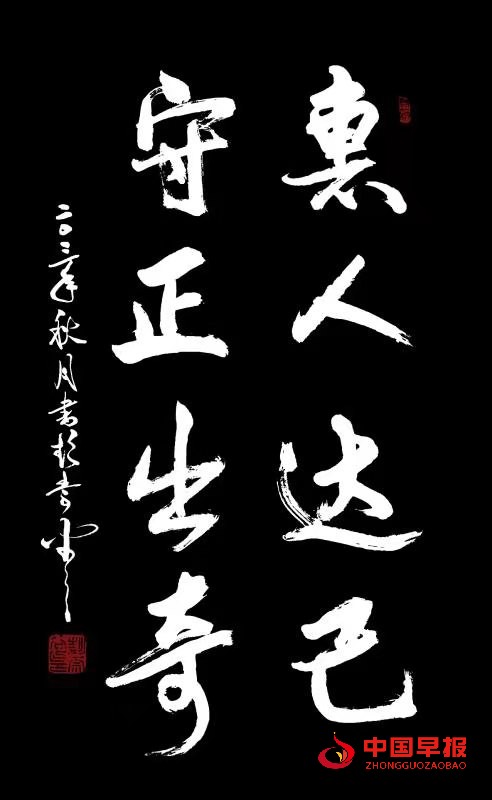 惠人达己
守正出奇
二〇二三年秋月书
中国早报
ZHONGGUOZAOBAO